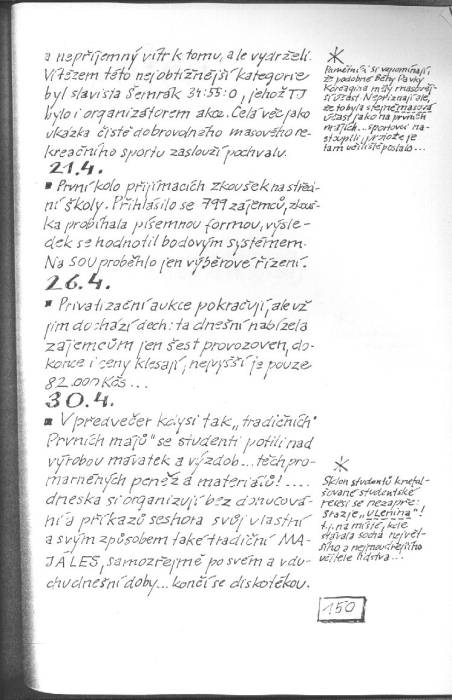 a nepříjemný vítr k tomu, ale vydrželi.
Vítězem této nejobtížnější kategorie
byl slavista Šemrák 34:55:0, jehož TJ
bylo i organizátorem akce. Celá věc jako
ukázka čistě dobrovolného masového re-
kreačního sportu zaslouží pochvalu.
21.4.
▪ První kolo přijímacích zkoušek na střed-
ní školy. Přihlásilo se 799 zájemců, zkouš-
ka probíhala písemnou formou, výsle-
dek se hodnotil bodovým systémem.
Na SOU proběhlo jen výběrové řízení.
26.4.
▪ Privatizační aukce pokračují, ale už
jim dochází dech: ta dnešní nabízela
zájemcům jen šest provozoven, do-
konce i ceny klesají, nejvyšší je pouze
82.000 Kčs...
30.4.
▪ V předvečer kdysi tak „tradičních"
Prvních májů" se studenti potili nad
výrobou mávátek a výzdob... těch pro-
marněných peněz a materiálů!....
dneska si organizují bez donucová-
ní a příkazů seshora svůj vlastní
a svým způsobem také tradiční MA-
JÁLES, samozřejmě po svém a v du-
chu dnešní doby... končí se diskotékou.
*
Pamětníci si vzpomínají,
že podobné Běhy Pavky
Korčagina měly masověj-
ší účast. Nepřiznají ale,
že to byla stejně masová
účast jako na prvních
májích... sportovci na-
stoupili, protože je
tam učiliště poslalo...
*
Sklon studentů k nefal-
šované studentské
recesi se nezapře:
sraz je „U Lenina"!
t.j. na místě, kde
stávala socha největ-
šího a nejmoudřejšího
učitele lidstva...
150